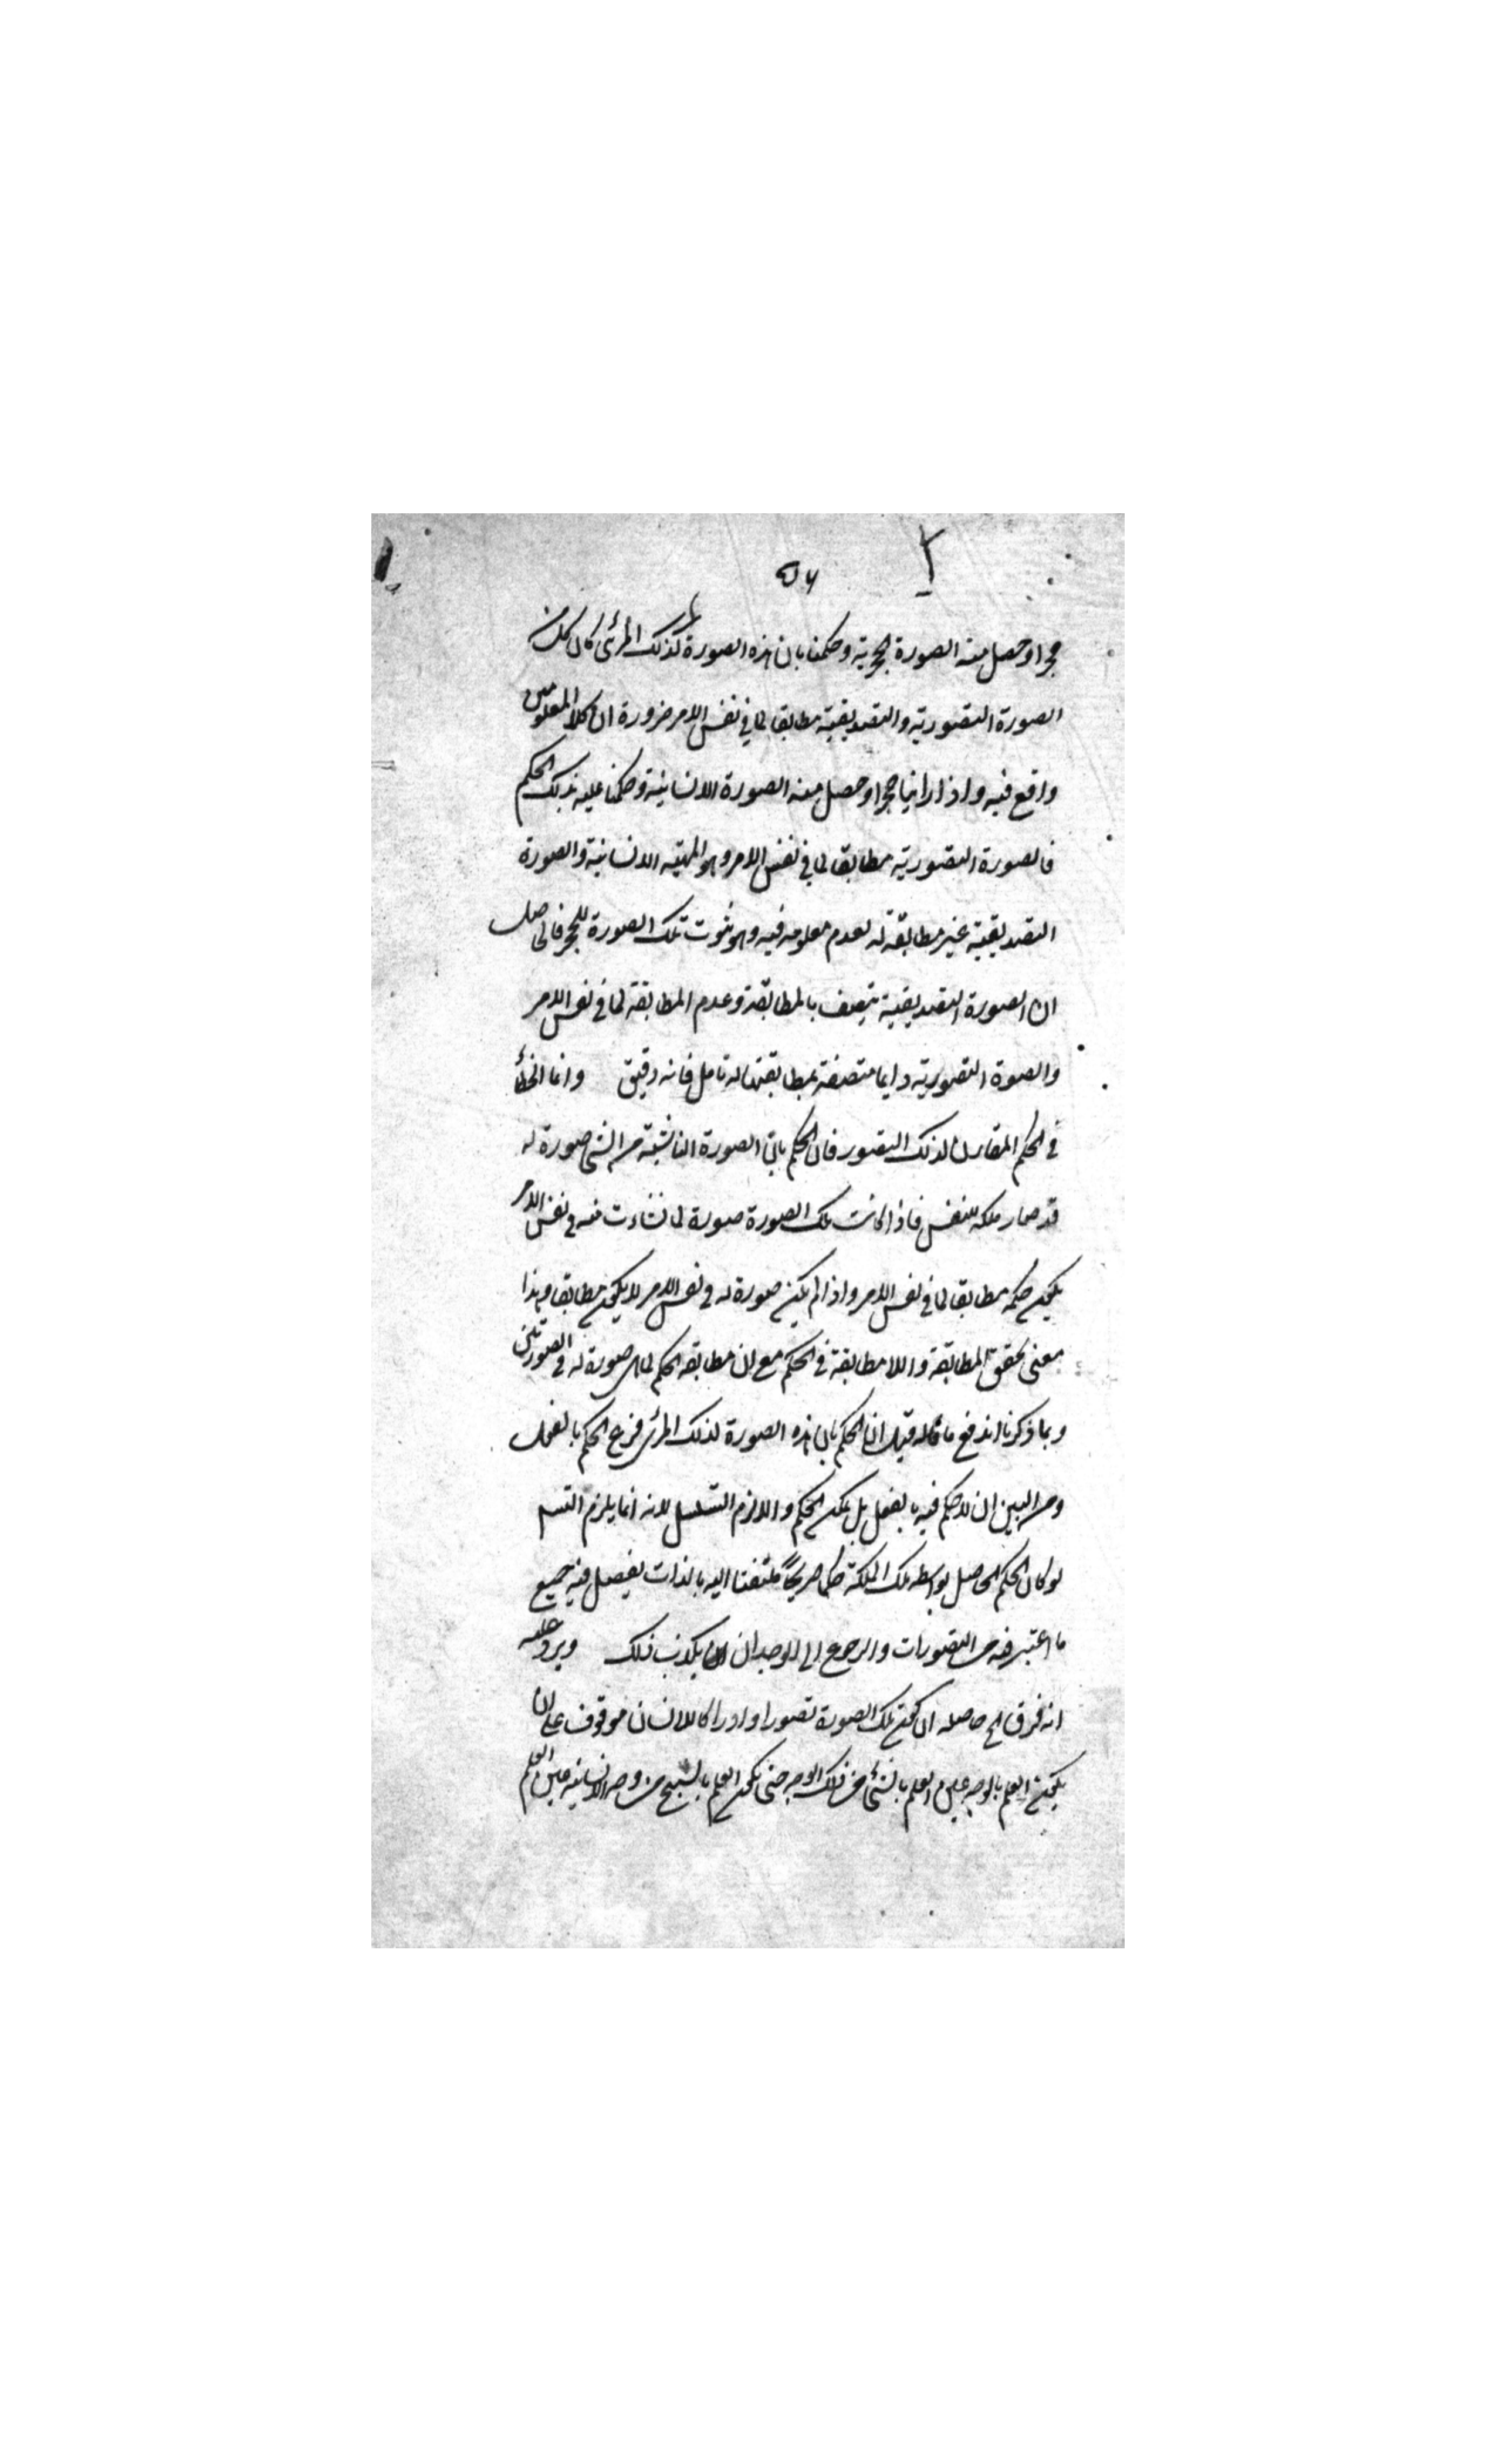 ٥٦
حجرا وحصل منه الصورة الحجرية وحكمنا بان هذه الصورة لذلك المرئى كان كل من
الصورة التصورية والتصديقية مطابقا لما فى نفس الامر ضرورة ان كلا المعلومين
واقع فيه واذا راينا حجرا وحصل منه الصورة الانسانية وحكمنا عليه بذلك الحكم
فالصورة التصورية مطابقا لما فى نفس الامر وهو المهية الانسانية والصورة
التصديقية غير مطابقة له لعدم معلومه فيه وهو ثبوت تلك الصورة للحجر فالحاصل
ان الصورة التصديقية يتصف بالمطابقة وعدم المطابقة لما فى نفس الامر
والصوة التصورية دايما متصفة بمطابقتها له تامل فانه دقيق وانما الخطأ
فى الحكم المقارن لذلك التصور فان الحكم بان الصورة الناشية من الشئ صورة له
قد صار ملكه للنفس فاذا كانت تلك الصورة صورة لما نشاءت منه فى نفس الامر
يكون حكمه مطابقا لما فى نفس الامر واذا لم يكن صورة له فى نفس الامر لا يكون مطابقا وهذا
معنى تحقق المطابقة واللامطابقة فى الحكم مع ان مطابقة الحكم لما صورة له فى الصورتين
وبما ذكرنا اندفع ما قاله قيل ان الحكم بان هذه الصورة لذلك المرئى فرع الحكم بالفعل
ومن البين ان لا حكم فيه بالفعل بل يمكن الحكم والا لزم التسلسل لانه انما يلزم التسم
لو كان الحكم الحاصل بواسطه تلك الملكة حكما صريحاً ملتفتا اليه بالذات يفصل فيه جميع
ما اعتبر فيه من التصورات والرجوع الى الوجدان يكذب ذلك ويرد عليه
انه فرق الخ حاصله ان كون تلك الصورة تصورا وادراكا للانسان موقوف على ان
يكون العلم بالوجه عين العلم بالشئ من ذلك الوجه حتى يكون العلم بالشبح من وجه الانسانية عين العلم